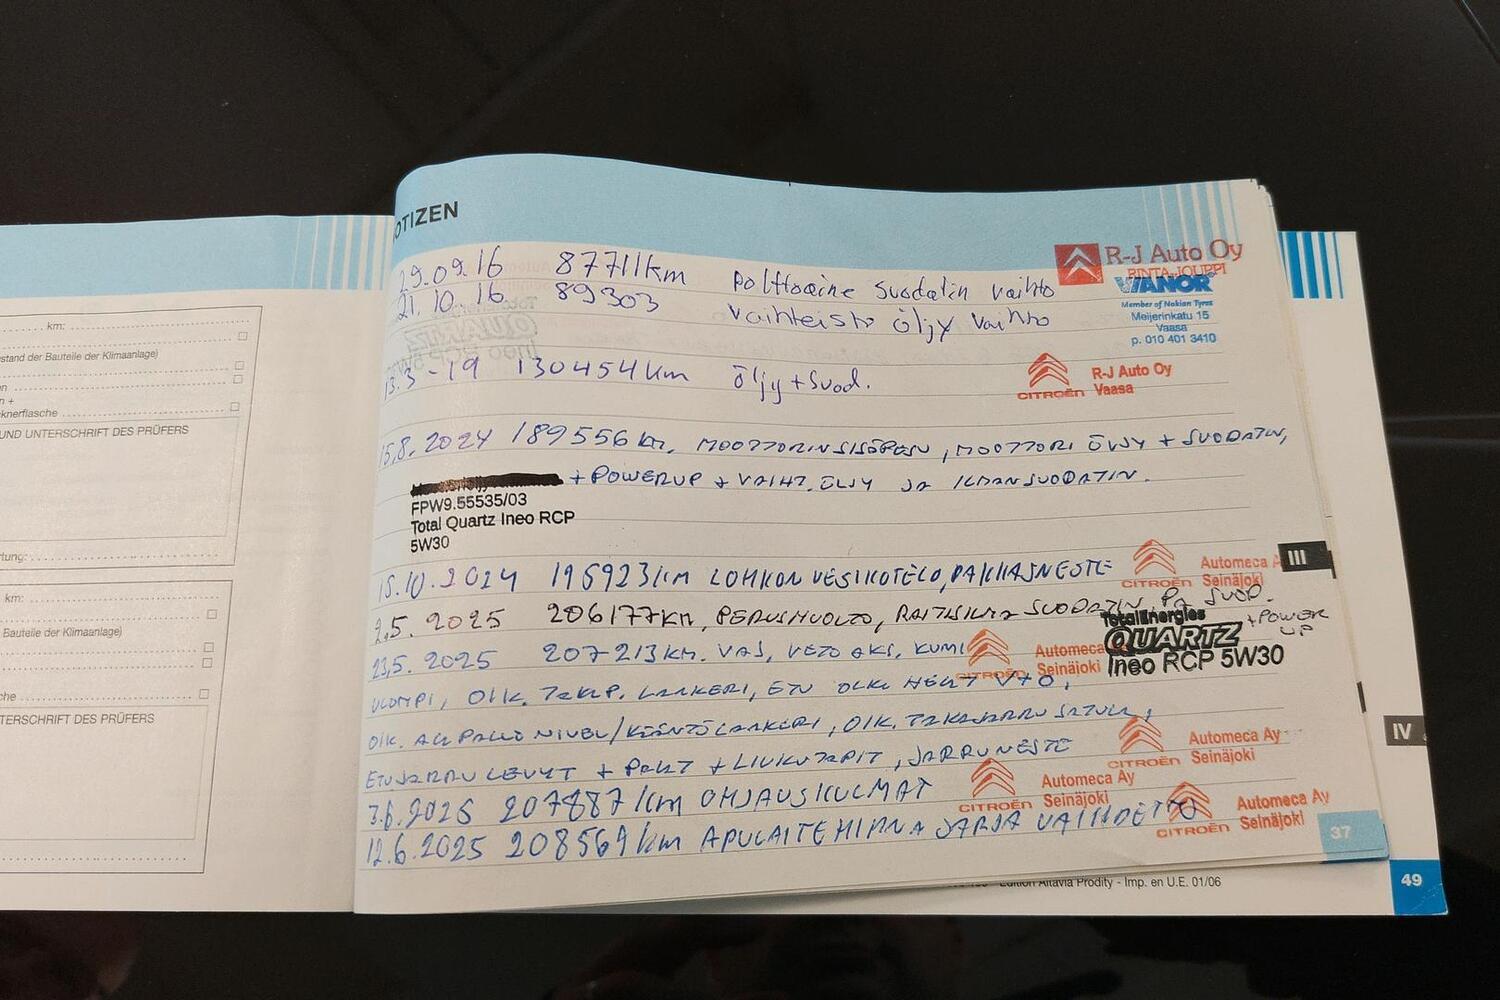 km:
stand der Bauteile der Klimaanlage)
n
n +
knerflasche
UND UNTERSCHRIFT DES PRÜFERS
tung:
km:
Bauteile der Klimaanlage)
che
TERSCHRIFT DES PRÜFERS
OTIZEN
R-J Auto Oy
RINTA-JOUPPI
29.09.16 87711km Polttoaine suodatin vaihto
VIANOR
Member of Nokian Tyres
Meijerinkatu 15
Vaasa
p. 010 401 3410
21.10.16 89303 Vaihteisto öljy vaihto
13.3-19 130454km Öljy + Suod.
CITROËN
R-J Auto Oy
Vaasa
15.8.2024 189556 km, MOOTTORIN SISÄPESU, MOOTTORI ÖLJY + SUODATIN,
+ POWERUP + VAIHT. ÖLJY JA ILMANSUODATIN.
FPW9.55535/03
Total Quartz Ineo RCP
5W30
15.10.2024 195923km LOHKON VESIKOTELO, PAKKASNESTE
CITROËN
Automeca
Seinäjoki
2.5.2025 206177km, PERUSHUOLTO, RAITISILMA SUODATIN, PA SUOD.
+ POWER UP
TotalEnergies
QUARTZ
Ineo RCP 5W30
23.5.2025 207213km. VAS, VETO AKS, KUMI
CITROËN
Automeca
Seinäjoki
OIK. LAAKERI, ETU
OIK. ALAPALLO NIVEL/ LAAKERI, OIK. TAKAJARRU SATULA,
CITROËN
Automeca Ay
Seinäjoki
ETUJARRU LEVYT + PALAT + LIUKUTAPIT, JARRUNESTE
3.6.2025 207887km OHJAUSKULMAT
CITROËN
Automeca Ay
Seinäjoki
12.6.2025 208569km APULAITEHIHNA SARJA VAIHDETTU
CITROËN
Automeca Ay
Seinäjoki
III
IV
37
Edition Altavia Prodity - Imp. en U.E. 01/06
49